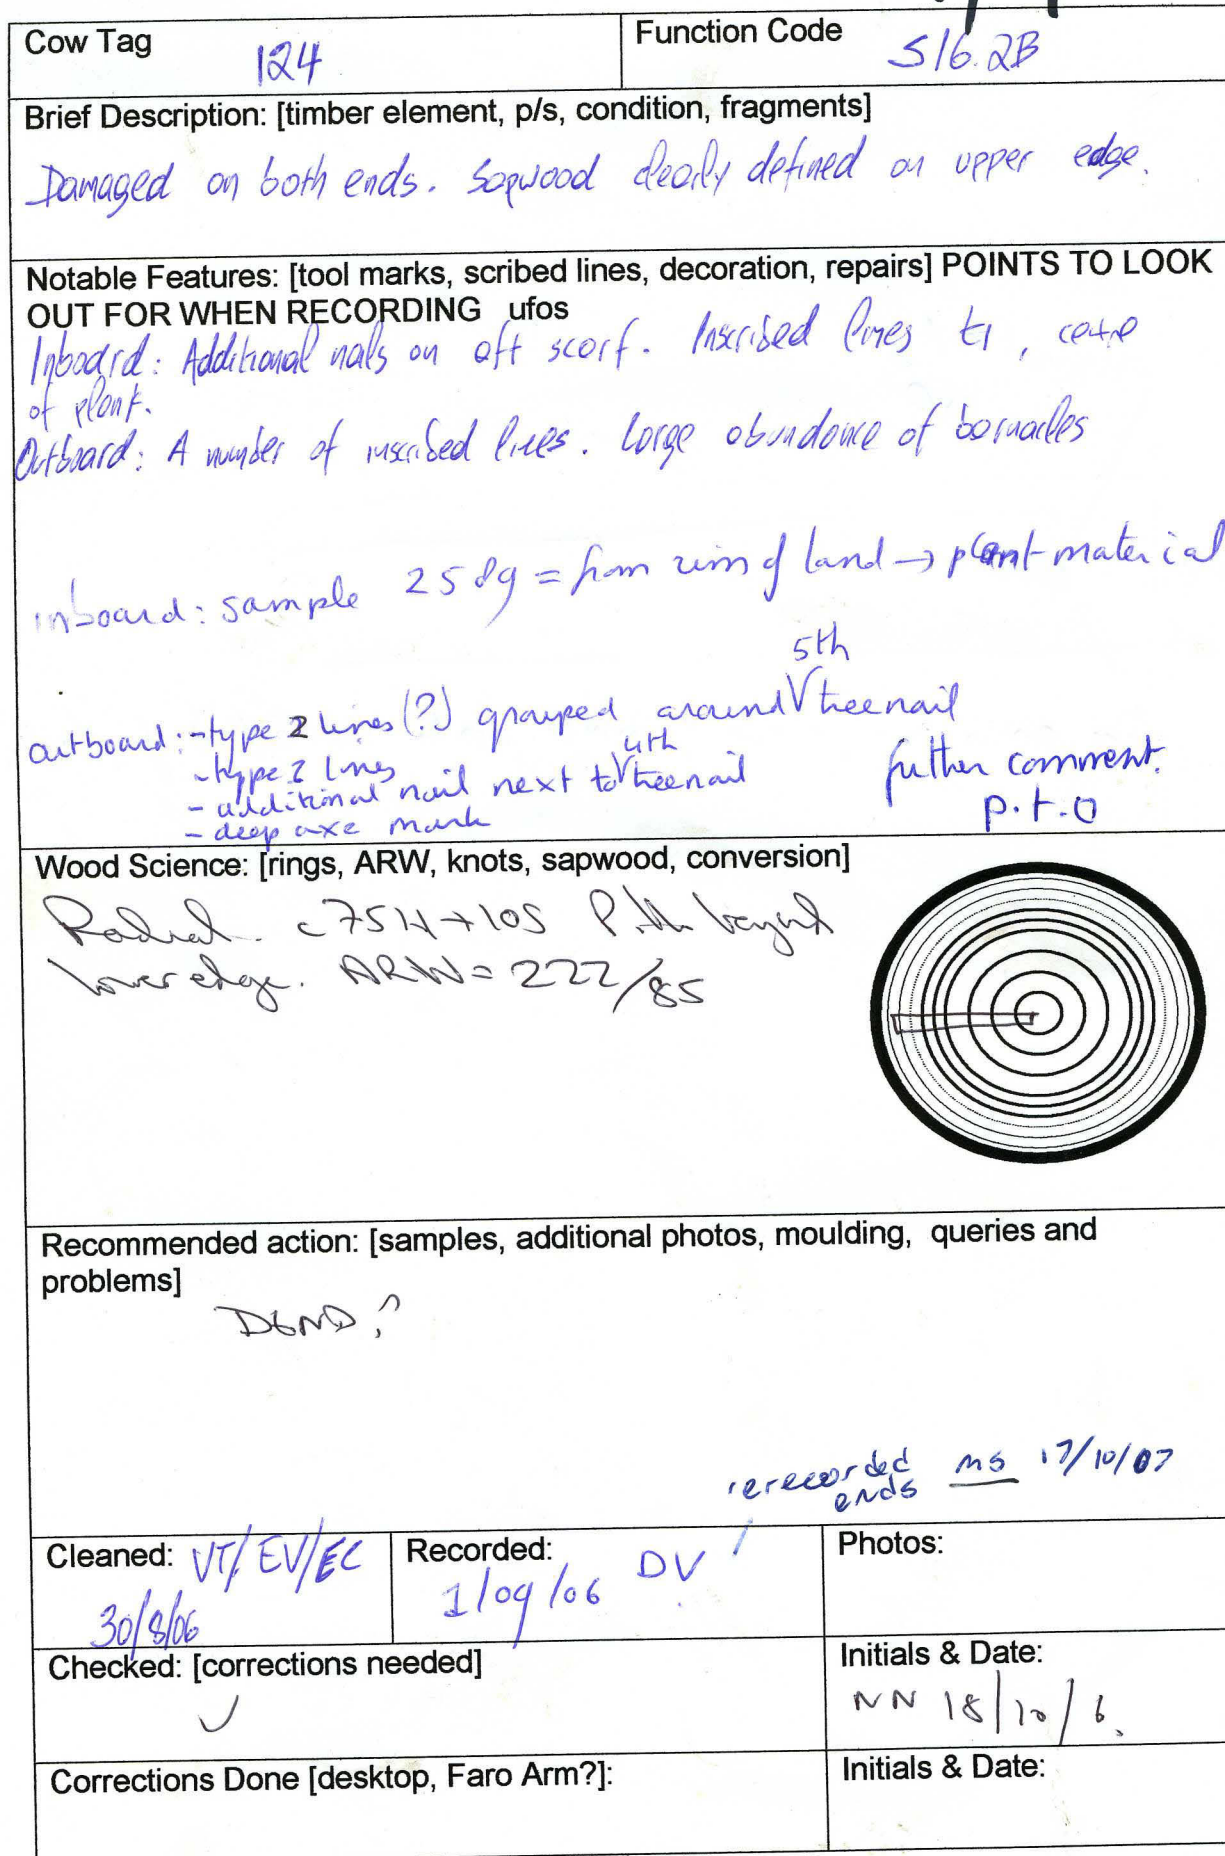 Cow Tag
124
Function Code
S16.2B
Brief Description: [timber element, p/s, condition, fragments]
Damaged on both ends. Sapwood clearly defined on upper edge.
Notable Features: [tool marks, scribed lines, decoration, repairs] POINTS TO LOOK
OUT FOR WHEN RECORDING ufos
Inboard: Additional nails on aft scarf. Inscribed lines
of plank.
Outboard: A number of inscribed lines. Large abundance of barnacles
inboard: sample 2589 = from rim of land → plant material
5th
outboard: - type 2 lines (?) grouped around √ treenail
- type 2 lines
4th
- additional nail next to √ treenail
- deep axe mark
further comment.
p.t.o
Wood Science: [rings, ARW, knots, sapwood, conversion]
Radial c75H+10S Pith beyond
lower edge. ARW = 222/85
Recommended action: [samples, additional photos, moulding, queries and
problems]
DEND?
rerecorded ms 17/10/07
ends
Cleaned: VT/EV/EC
30/8/06
Recorded:
1/09/06 DV
Photos:
Checked: [corrections needed]
✓
Initials & Date:
NN 18/10/6.
Corrections Done [desktop, Faro Arm?]:
Initials & Date: